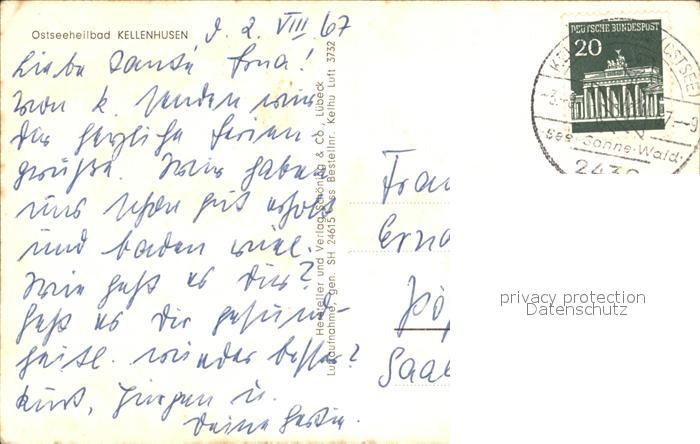 Ostseeheilbad KELLENHUSEN
d. 2. VIII 67
Liebe Tante Erna!
Von K. senden wir
dir herzliche Ferien-
grüße. Wir haben
uns schon gut erholt
und baden viel.
Wie geht es dir?
Geht es dir gesund-
heitl. wieder besser?
Kurt, Jürgen u.
Deine
Hersteller und Verlag Schöning & Co., Lübeck
Luftaufnahme, gen. SH 24615 Bestellnr. Kelhu Luft 3732
DEUTSCHE BUNDESPOST
20
(OSTSEE)
see-Sonne-Wald
Frau
Erna
Saa
privacy protection
Datenschutz